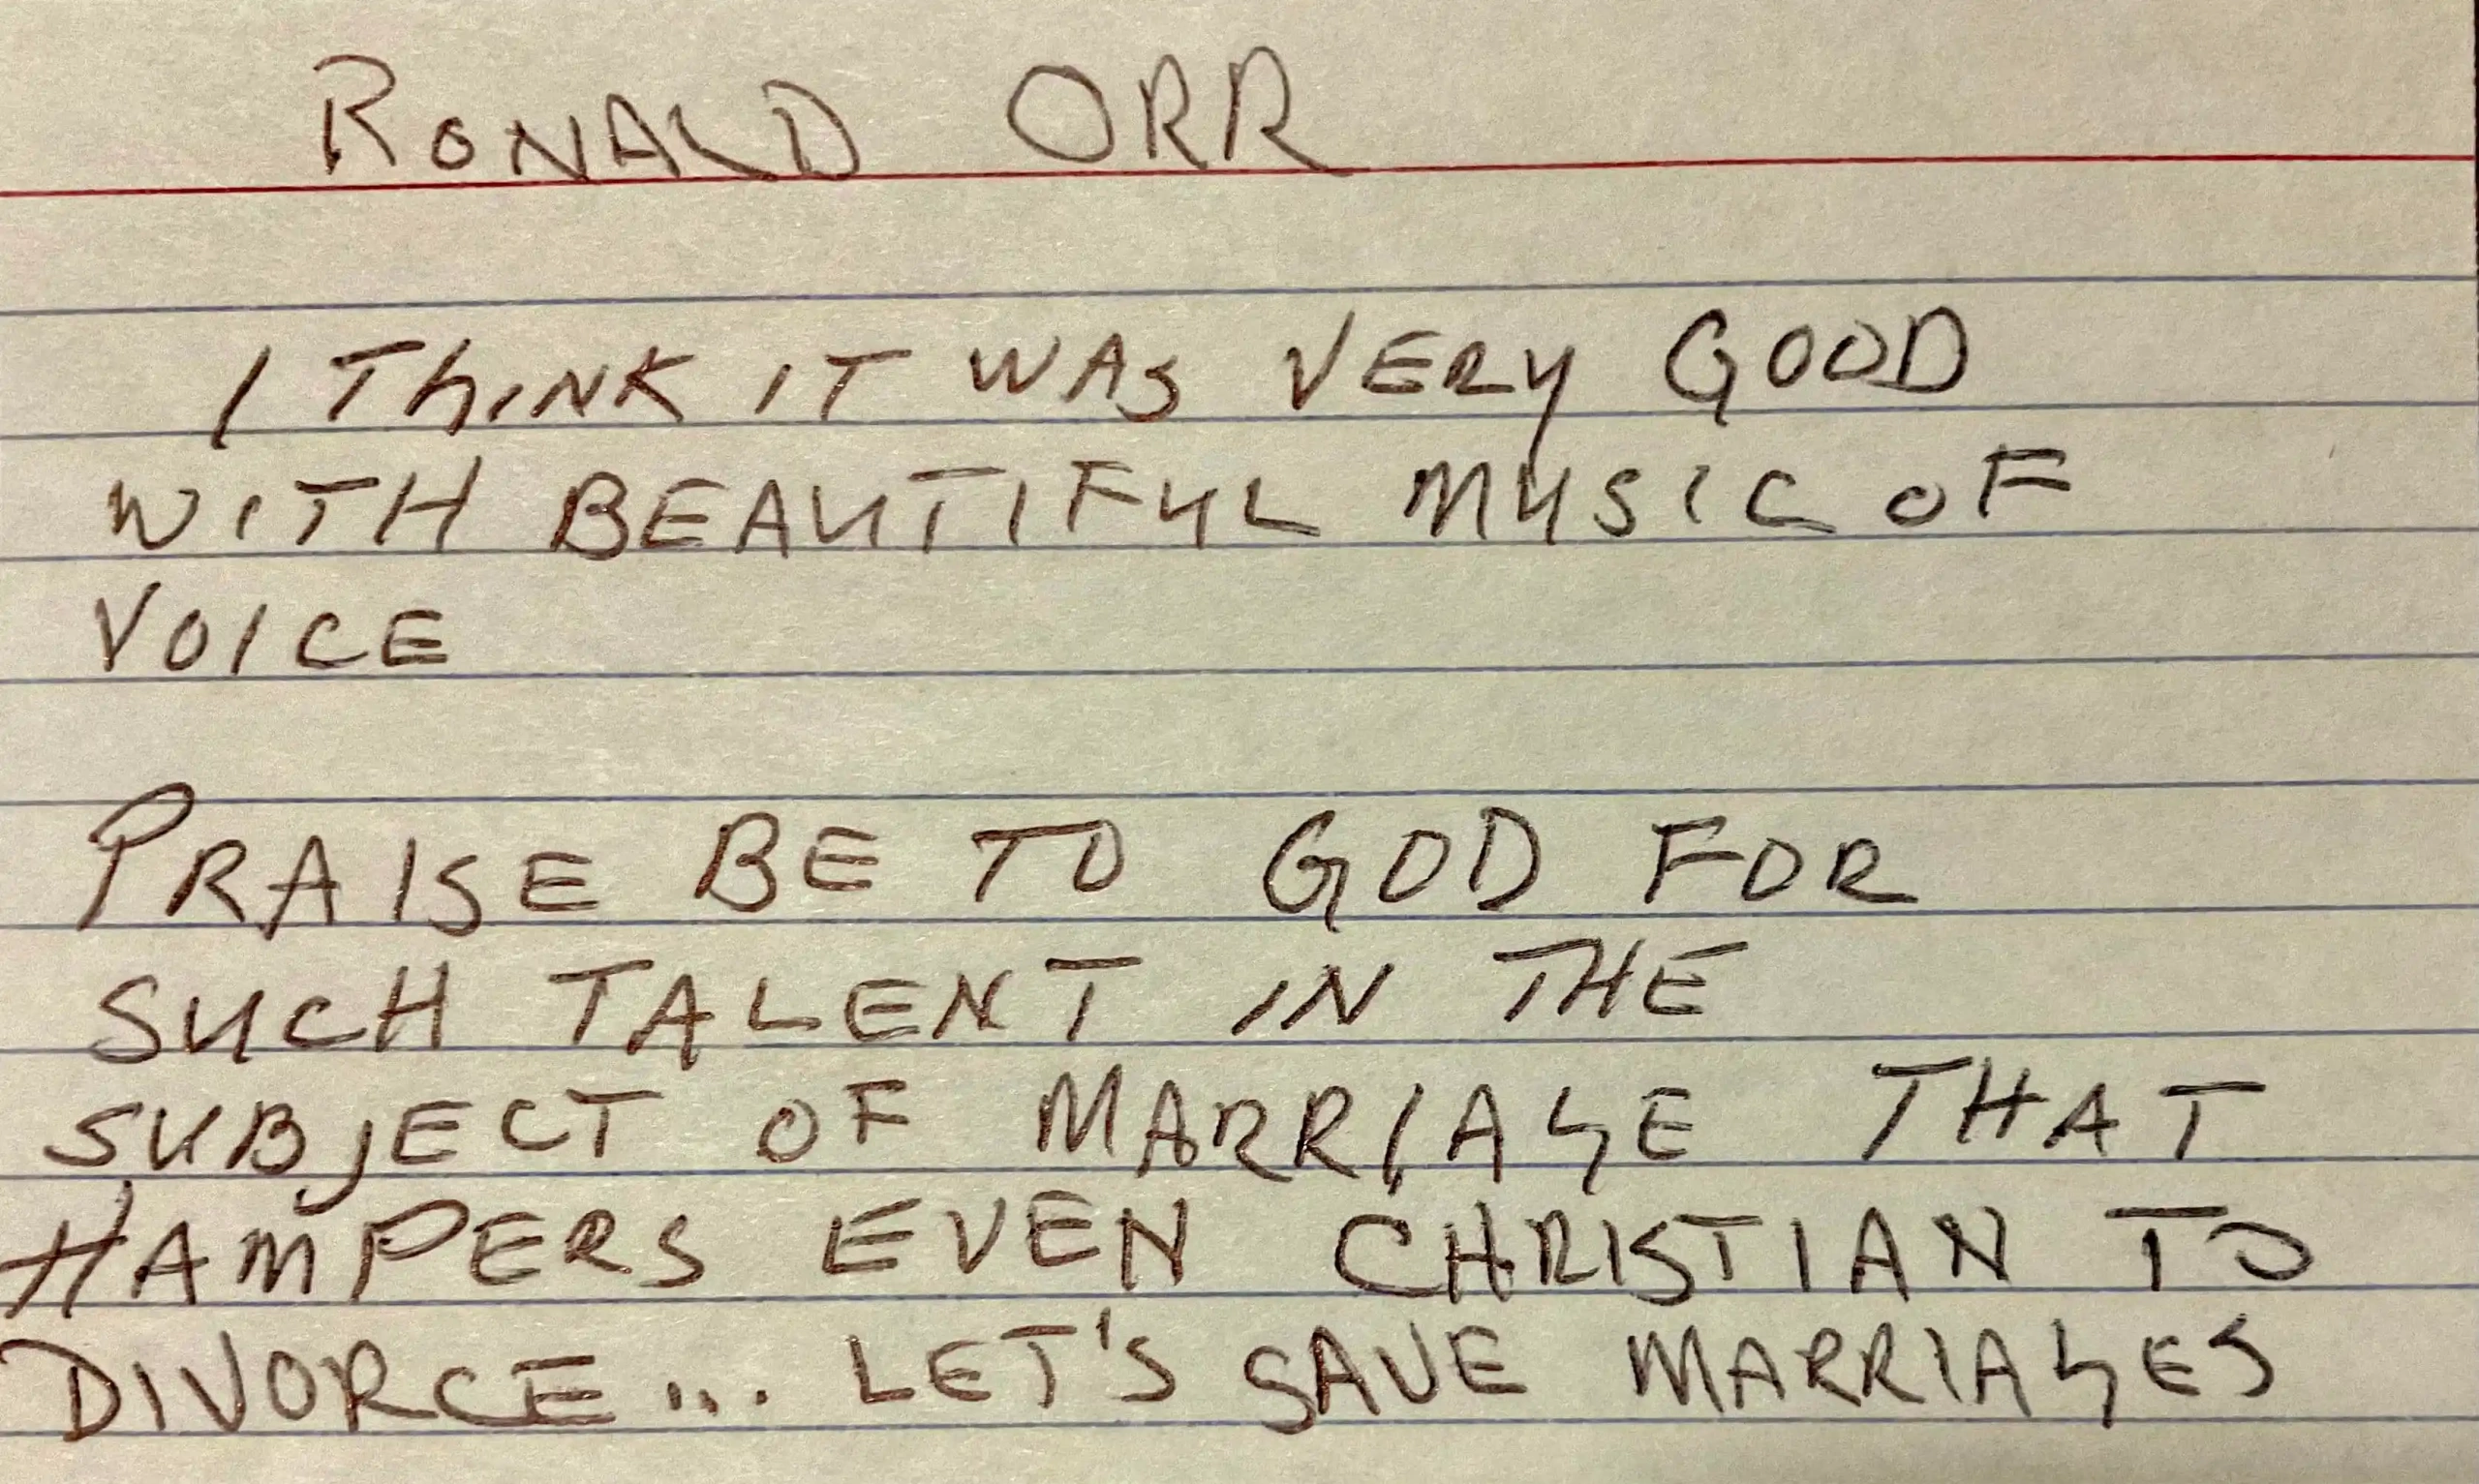 RONALD ORR
I THINK IT WAS VERY GOOD
WITH BEAUTIFUL MUSIC OF
VOICE
PRAISE BE TO GOD FOR
SUCH TALENT IN THE
SUBJECT OF MARRIAGE THAT
HAMPERS EVEN CHRISTIAN TO
DIVORCE... LET'S SAVE MARRIAGES